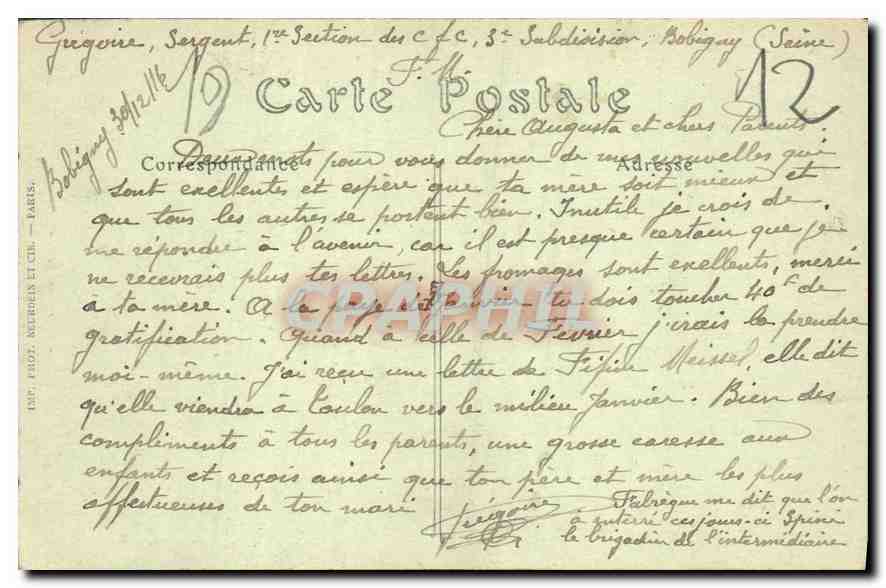 Grégoire, Sergent, 1re Section des c f c, 3e Subdivision, Bobigny (Seine)
F. M.
19
12
Carte Postale
Bobigny 30/12/16
Chère Augusta et chers Parents.
Correspondance
Adresse
Deux mots pour vous donner de mes nouvelles qui
sont exellentes et espère que ta mère soit mieux et
que tous les autres se portent bien. Inutile je crois de
me répondre à l'avenir, car il est presque certain que je
ne recevrais plus tes lettres. Les fromages sont exellents, merci
à ta mère. A la paye de Janvier tu dois toucher 40f de
gratification. Quand à celle de Février j'irais la prendre
moi-même. J'ai reçu une lettre de Fifine Meissel, elle dit
qu'elle viendra à Toulon vers le milieu Janvier. Bien des
compliments à tous les parents, une grosse caresse aux
enfants et reçois ainsi que ton père et mère les plus
affectueuses de ton mari
Grégoire
Fabrègue me dit que l'on
à enterré ces jours-ci
le brigadier de l'intermédiaire
IMP. PHOT. NEURDEIN ET CIE. — PARIS.
CPAPHIL